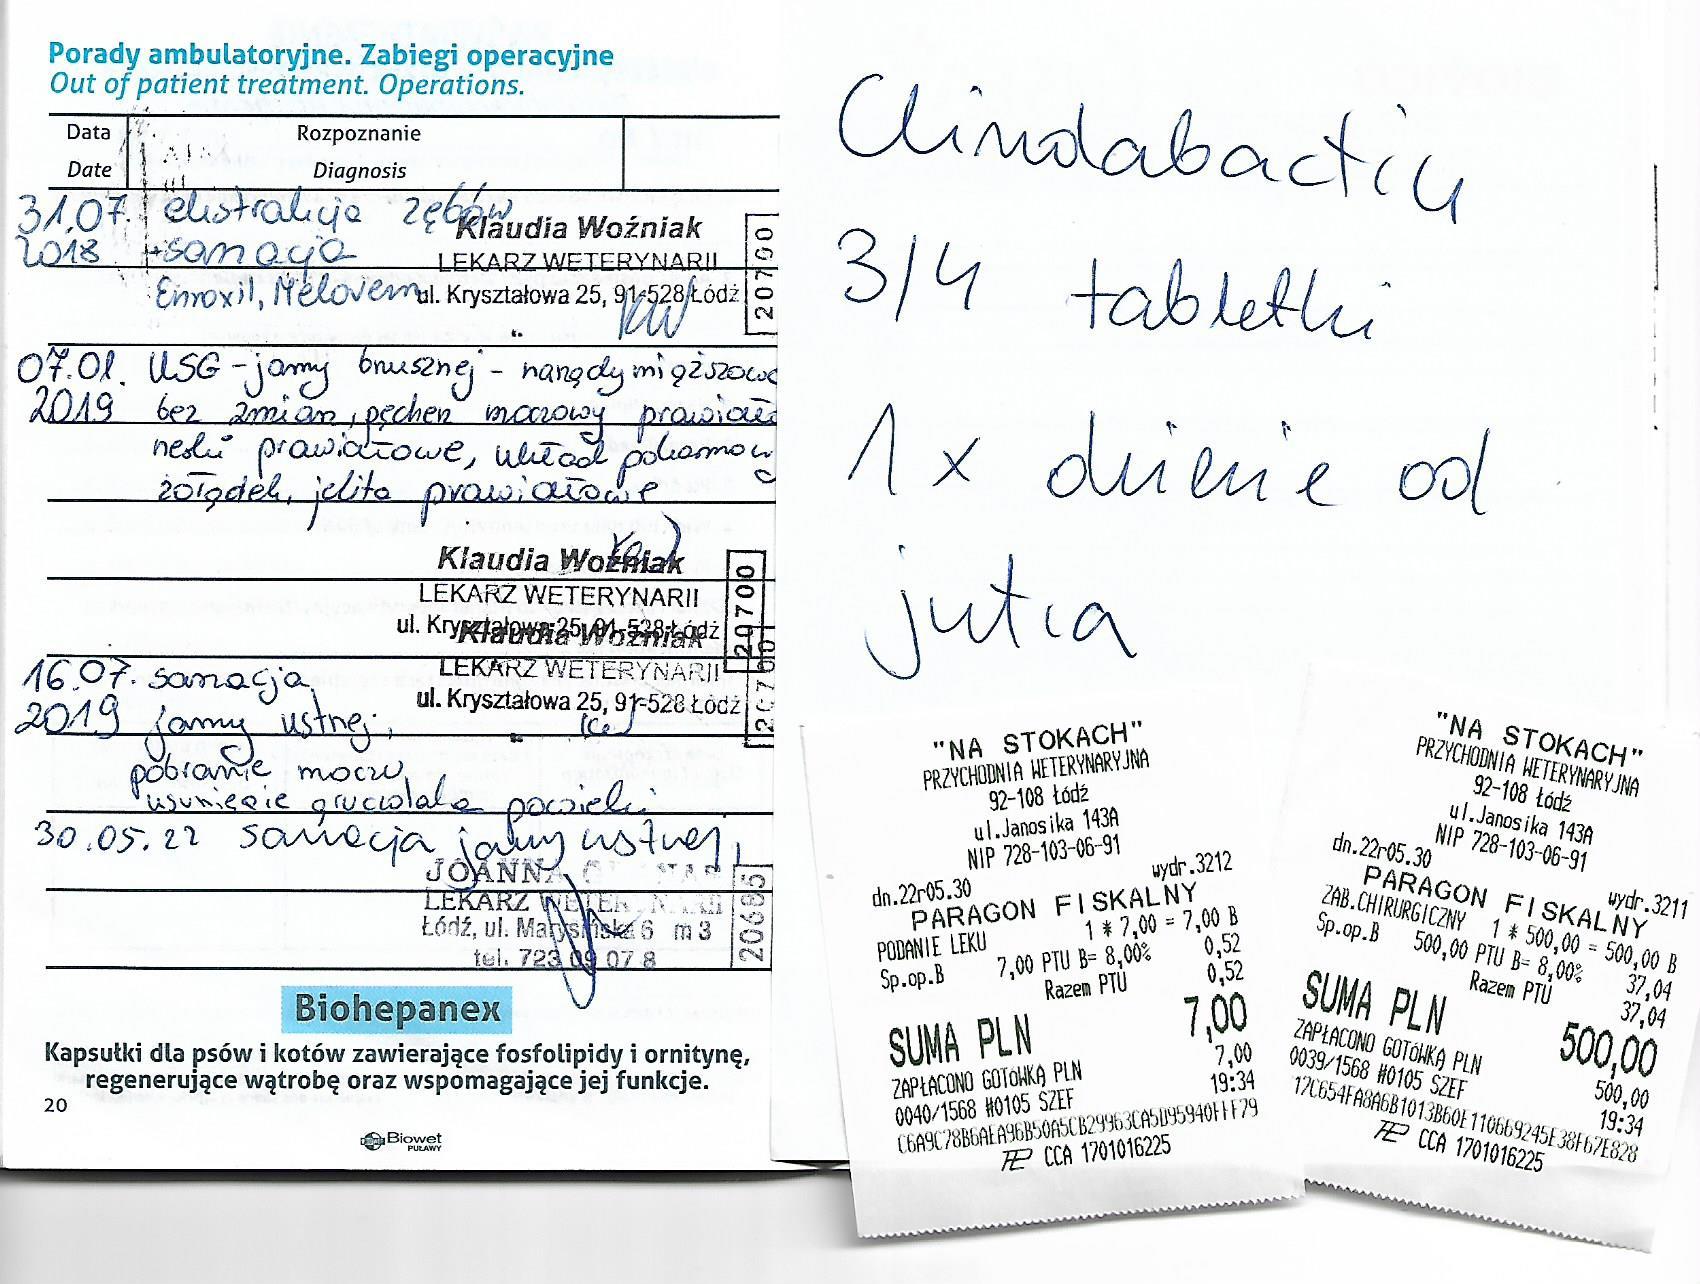 Porady ambulatoryjne. Zabiegi operacyjne
Out of patient treatment. Operations.
Data
Date
Rozpoznanie
Diagnosis
31.07. ekstrakcja zębów
2018 + sanacja
Enroxil, Melovem
Klaudia Woźniak
LEKARZ WETERYNARII
ul. Kryształowa 25, 91-528 Łódź
20700
07.01. USG - jamy brusznej - narządy miąższowe
2019 bez zmian, pęcherz moczowy prawidło
nerki prawidłowe, układ pokarmow
żołądek, jelita prawidłowe
Klaudia Woźniak
LEKARZ WETERYNARII
ul. Kryształowa 25, 91-528 Łódź
20700
Klaudia Woźniak
LEKARZ WETERYNARII
ul. Kryształowa 25, 91-528 Łódź
20700
16.07. sanacja
2019 jamy ustnej,
pobranie moczu,
usunięcie gruczolaka powieki
30.05.22 sanacja jamy ustnej,
JOANNA
LEKARZ WETERYNARII
Łódź, ul. Marysińska 6 m 3
tel. 723 09 07 8
20685
Biohepanex
Kapsułki dla psów i kotów zawierające fosfolipidy i ornitynę,
regenerujące wątrobę oraz wspomagające jej funkcje.
20
Biowet
PUŁAWY
Clindabactin
3/4 tabletki
1 x dziennie od
jutra
"NA STOKACH"
PRZYCHODNIA WETERYNARYJNA
92-108 Łódź
ul.Janosika 143A
NIP 728-103-06-91
dn.22r05.30 wydr.3212
PARAGON FISKALNY
PODANIE LEKU 1 * 7,00 = 7,00 B
Sp.op.B 7,00 PTU B= 8,00% 0,52
Razem PTU 0,52
SUMA PLN 7,00
ZAPŁACONO GOTÓWKĄ PLN 7,00
0040/1568 #0105 SZEF 19:34
C6A9C78B6AEA96B50A5CB29963CA5D95940FFF79
CCA 1701016225
"NA STOKACH"
PRZYCHODNIA WETERYNARYJNA
92-108 Łódź
ul.Janosika 143A
NIP 728-103-06-91
dn.22r05.30 wydr.3211
PARAGON FISKALNY
ZAB.CHIRURGICZNY 1 * 500,00 = 500,00 B
Sp.op.B 500,00 PTU B= 8,00% 37,04
Razem PTU 37,04
SUMA PLN 500,00
ZAPŁACONO GOTÓWKĄ PLN 500,00
0039/1568 #0105 SZEF 19:34
17C654FA8A6B1013B60E110669245E38F67E828
CCA 1701016225